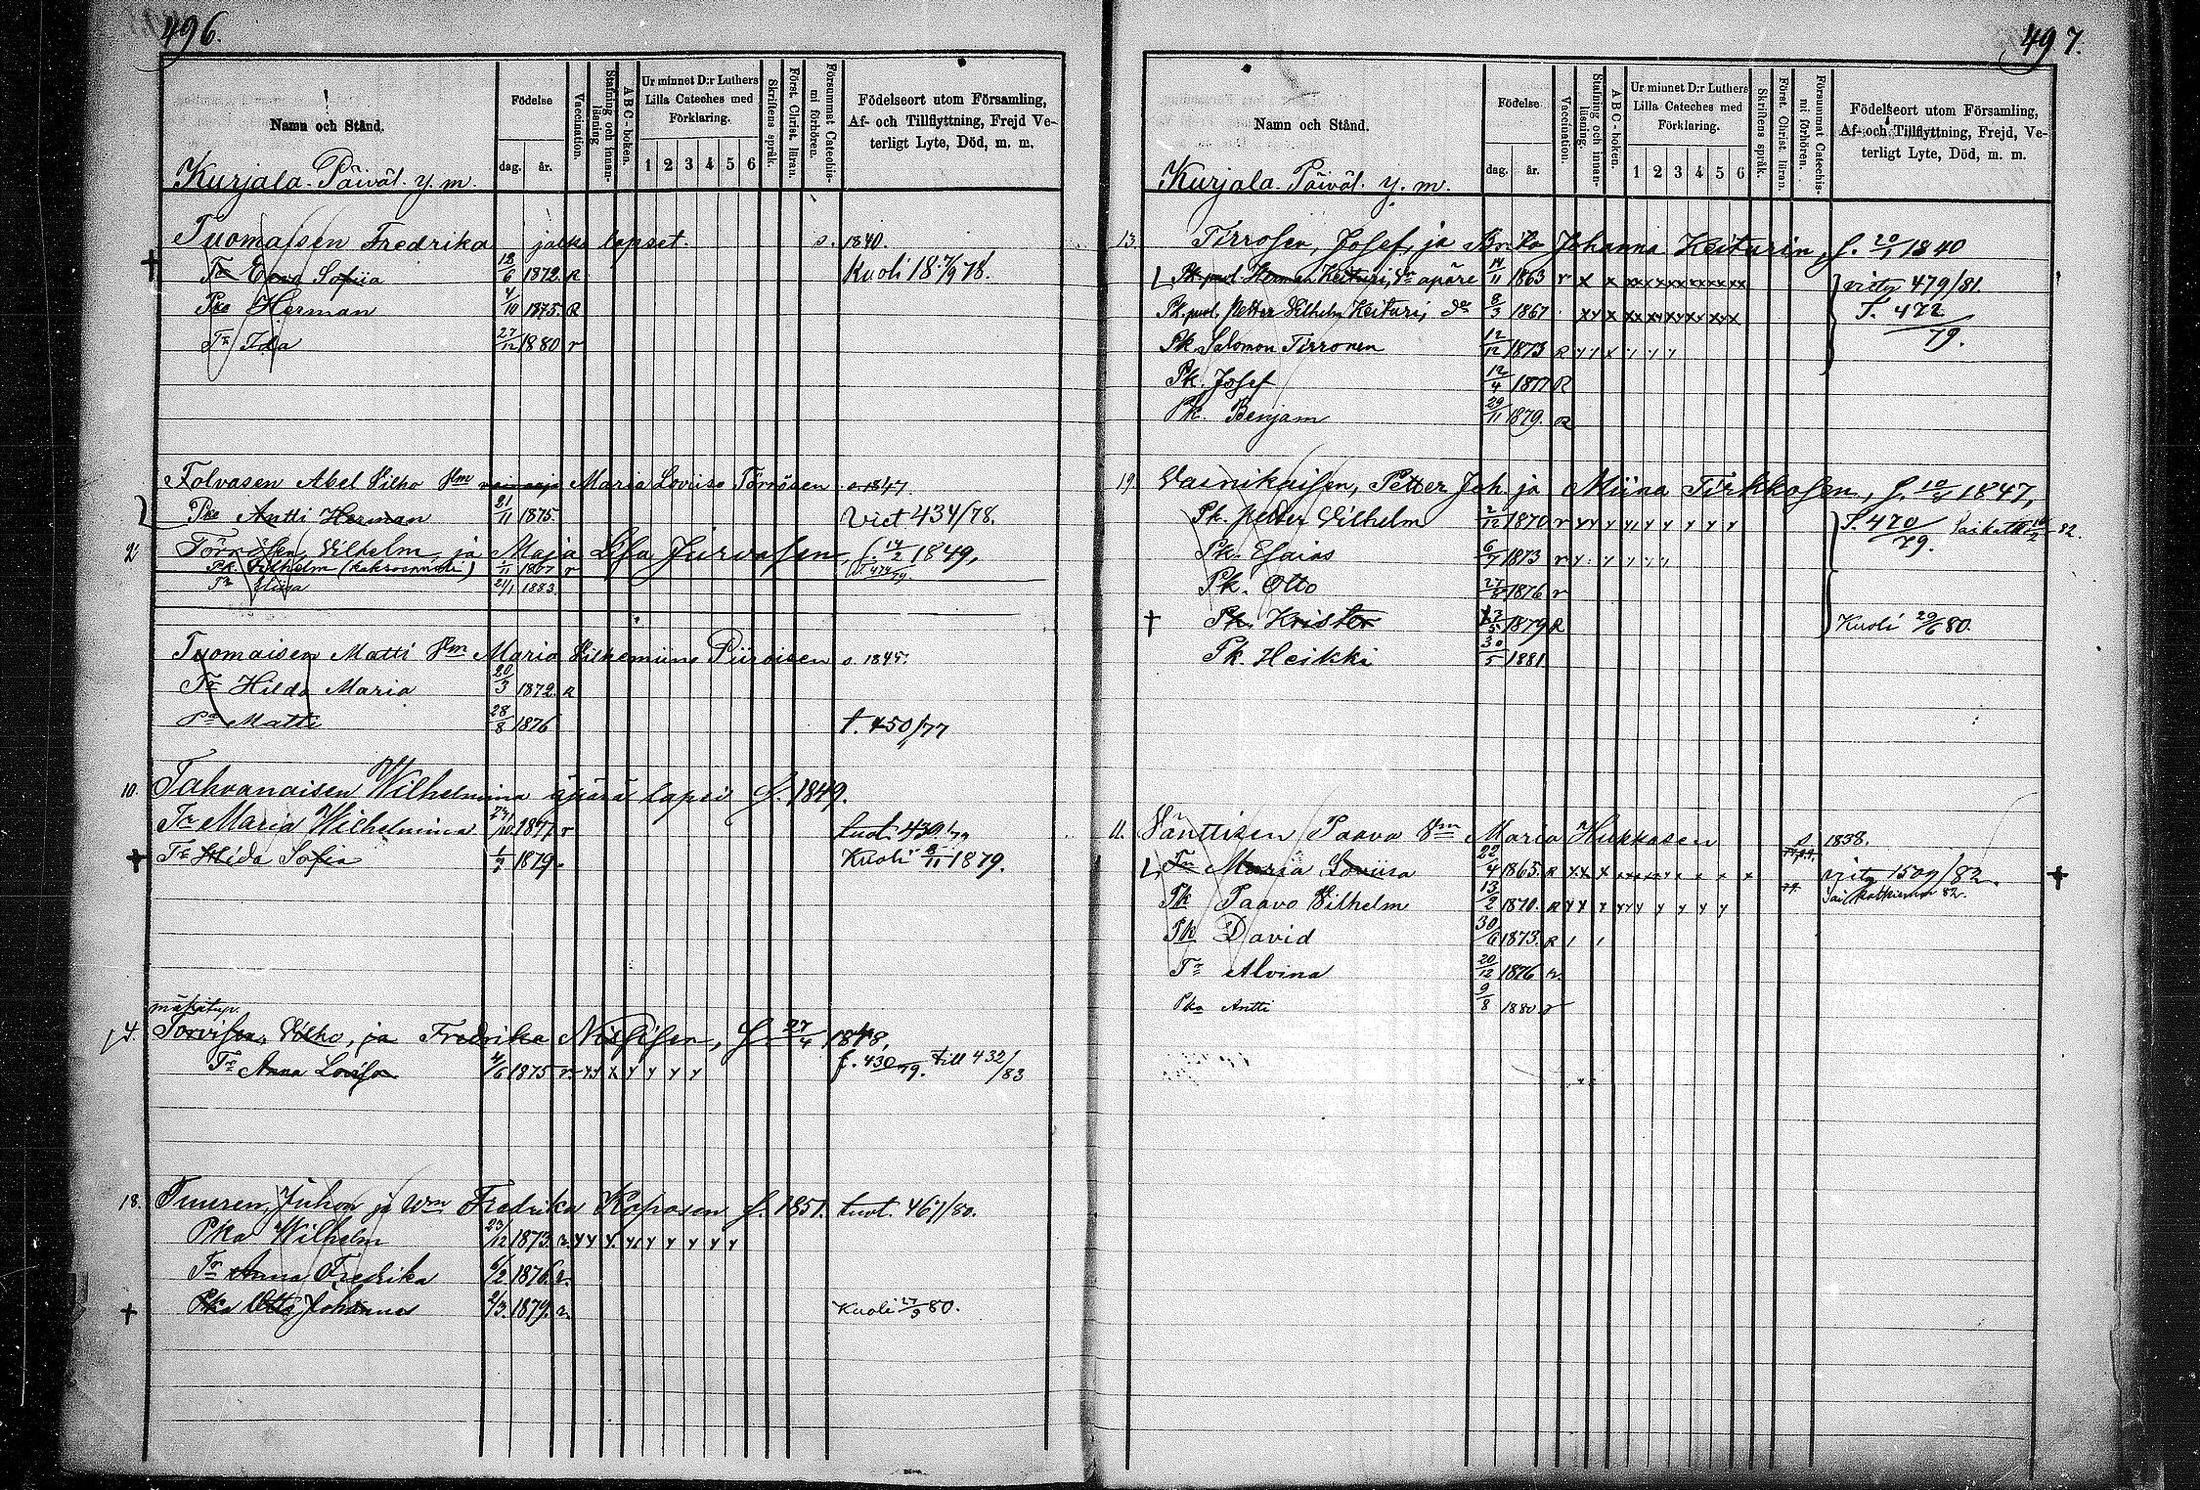 496.
Namn och Stånd.
Födelse
dag. år.
Vaccination.
Stafning och innanläsning
A B C-boken.
Ur minnet D:r Luthers Lilla Cateches med Förklaring.
1 2 3 4 5 6
Skriftens språk.
Först. Christ. läran.
Försummat Catechismi förhören.
Födelseort utom Församling,
Af- och Tillflyttning, Frejd Ve-
terligt Lyte, Död, m. m.
Kurjala Päiväl. y. m.
Tuomaisen Fredrika jälk. lapset. s. 1840.
Tr Eeva Sofiia 12/6 1872. R Kuoli 18 7/9 78.
Pko Herman 4/10 1875. R
Tr Ida 27/12 1880 r
Tolvasen Abel Vilho Vm Maria Loviise Törrösen s. 1847
Pko Antti Herman 21/11 1875. Viet 434/78.
Törrösen, Vilhelm, ja Maja Lisa Jurvasen, f. 14/2 1849,
Pk. Vilhelm 1867 r
Tr Eliisa 21/1 1883.
Tuomaisen Matti Vm Maria Vilhemiina Piiroisen s. 1845.
Tr Hilda Maria 20/3 1872. R
Matti 28/8 1876 t. 450/77
10. Tahvanaisen Wilhelmina äpärä lapsi f. 1849.
Tr Maria Wilhelmina 1877 r tuot. 439/79
Tr Hilda Sofia 1879 Kuoli 8/11 1879.
14. Torvisen, Vilho, ja Fredrika Nissisen, f. 27/4 1848,
Tr Anna Lovisa 4/6 1875 r y y x y y y y f. 430/79. till 432/83
18. Tuuren, Juhon ja Wm Fredrika Koposen f. 1851. tuot. 467/80.
Pko Wilhelm 23/12 1873. r. y y y. y y y y y y
Tr Anna Fredrika 6/2 1876. r.
Pko Otto Johannes 2/3 1879. r. Kuoli 27/3 80.
497.
Namn och Stånd.
Födelse
dag. år.
Vaccination.
Stafning och innanläsning.
A B C-boken.
Ur minnet D:r Luthers Lilla Cateches med Förklaring.
1 2 3 4 5 6
Skriftens språk.
Först Christ. läran.
Försummat Catechismi förhören.
Födelseort utom Församling,
Af- och Tillflyttning, Frejd, Ve-
terligt Lyte, Död, m. m.
Kurjala Päiväl. y. m.
13. Tirrosen, Josef, ja Brita Johanna Keiturin, f. 20/1 1840
Pk. pul. Herman Keituri, äpäre 14/11 1863 r x x xx xx xx xx xx xx viety 479/81.
Pk. pul. Petter Vilhelm Keituri, do 8/3 1867 x x x xx xx xx xx xx x S. 472/79.
Pk. Salomon Tirronen 12/12 1873 R y y x y y y
Pk. Josef 12/4 1877 R
Pk. Benjam 29/11 1879. R
19 Vainikaisen, Petter Joh. ja Miina Tirkkosen, f. 10/4 1847,
Pk. Petter Vilhelm 2/12 1870 r y y y y y y y y y S. 470/79.
Pk. Esaias 6/7 1873 r y
Pk. Otto 1876 r
Pk. Krister 1879 R Kuoli 20/6 80.
Pk. Heikki 30/5 1881
11. Vänttisen Paavo Vm Maria Hukkasen s 1838.
Tr Maria Loviisa 22/4 1865. R x x x viety 1509/82.
Pk Paavo Vilhelm 13/2 1870. R y y y y y y y y y
Pk David 30/6 1873. R
Tr Alvina 20/12 1876 r.
Pko Antti 9/8 1880 r